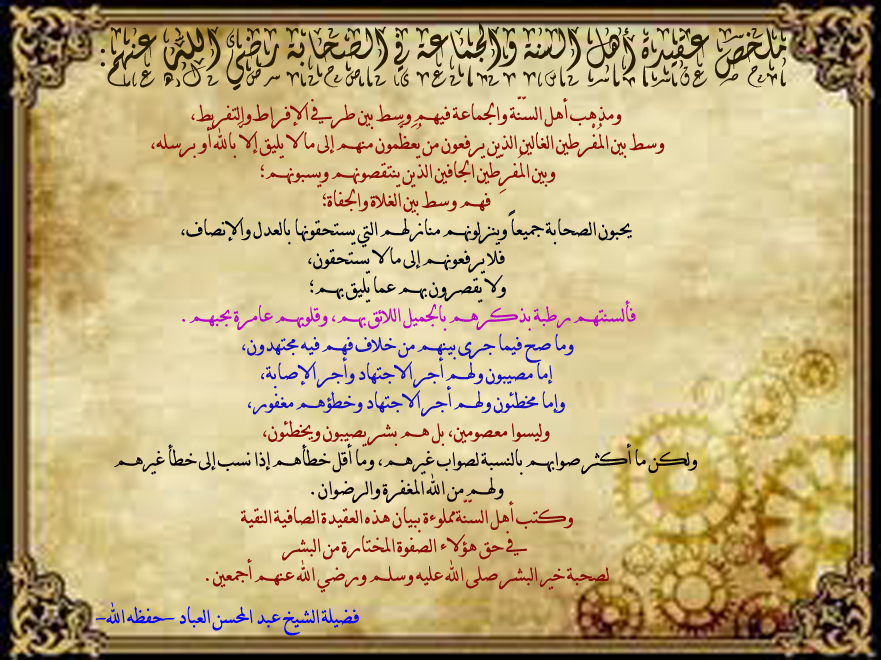 ملخص عقيدة أهل السنة والجماعة في الصحابة رضي الله عنهم:
ومذهب أهل السنّة والجماعة فيهم وسط بين طرفي الإفراط والتفريط،
وسط بين المُفْرِطين الغالين الذين يرفعون من يُعَظَّمون منهم إلى ما لا يليق إلا بالله أو برسله،
وبين المُفَرِطين الجافين الذين ينتقصونهم ويسبونهم؛
فهم وسط بين الغلاة والجفاة؛
يحبون الصحابة جميعاً وينزلونهم منازلهم التي يستحقونها بالعدل والإنصاف،
فلا يرفعونهم إلى مالا يستحقون،
ولا يقصرون بهم عما يليق بهم؛
فألسنتهم رطبة بذكرهم بالجميل اللائق بهم، وقلوبهم عامرة بحبهم .
وما صح فيما جرى بينهم من خلاف فهم فيه مجتهدون،
إما مصيبون ولهم أجر الاجتهاد وأجر الإصابة،
وإما مخطئون ولهم أجر الاجتهاد وخطؤهم مغفور،
وليسوا معصومين، بل هم بشر يصيبون ويخطئون،
ولكن ما أكثر صوابهم بالنسبة لصواب غيرهم، وما أقل خطأهم إذا نسب إلى خطأ غيرهم
ولهم من الله المغفرة والرضوان .
وكتب أهل السنّة مملوءة ببيان هذه العقيدة الصافية النقية
في حق هؤلاء الصفوة المختارة من البشر
لصحبة خير البشر صلى الله عليه وسلم ورضي الله عنهم أجمعين .
فضيلة الشيخ عبد المحسن العباد -حفظه الله-